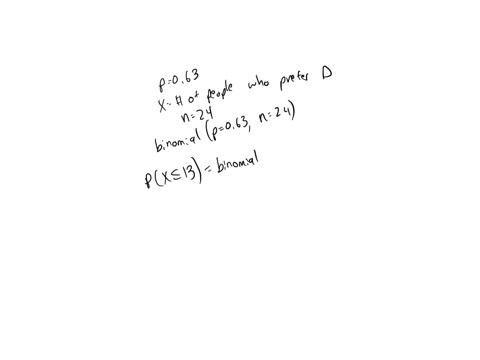 p=0.63
X= # of people who prefer D
n=24
binomial (p=0.63, n=24)
P(X≤13)=binomial